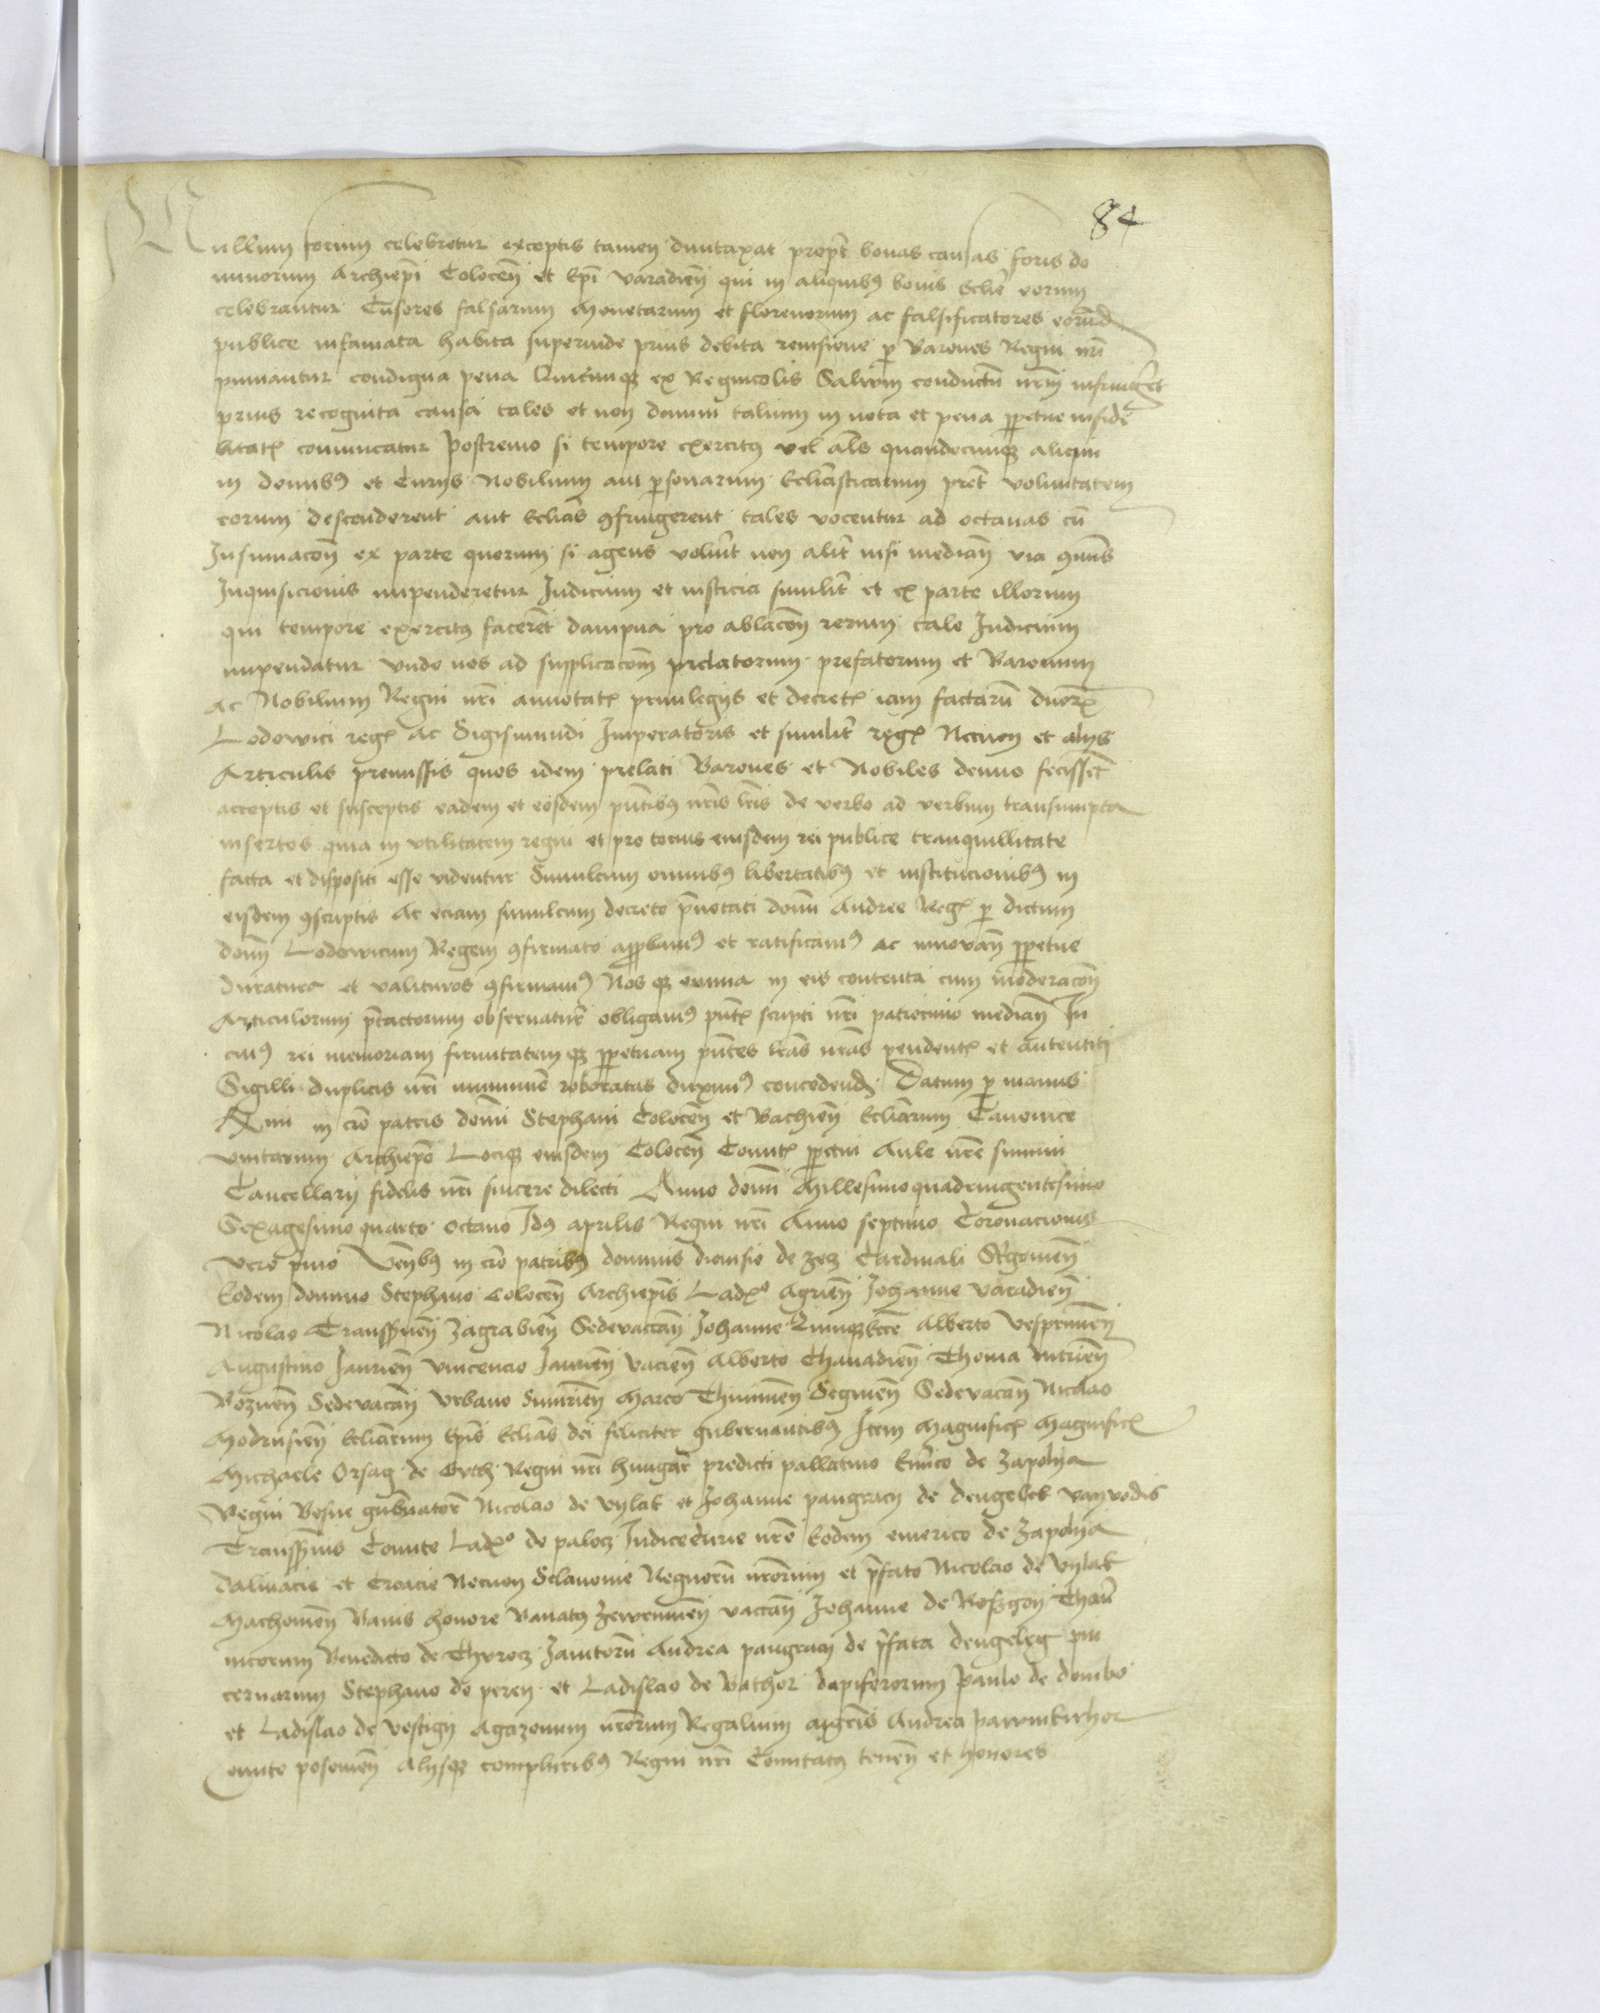 84
Nullum forum celebretur exceptis tamen duntaxat propt bonas causas foris do
minorum Archiepi Colocen et Epi Varadien qui in aliquibus bonis Eccle eorum
celebrantur Cusores falsarum Monetarum et florenorum ac falsificatores eorund
publice infamata habita superinde prius debita revisione per Barones Regni nri
puniantur condigna pena Quicunque ex Regnicolis Salvum conductum nrm infringeret
prius recognita causa tales et non domini talium in nota et pena perpetue infide
litatis convincatur Postremo si tempore exercitus vel als quandocunque aliqui
in domibus et Curys Nobilium aut personarum Ecclesiasticarum pret voluntatem
eorum descenderent aut Ecclias confringerent tales vocentur ad octavas cum
Insinuacon ex parte quorum si agens voluit non alit nisi median via comunis
Inquisicionis impenderetur Judicium et iusticia similit et ex parte illorum
qui tempore exercitus facerent dampna pro ablacon rerum tale Judicium
impendatur Unde nos ad supplicacom prelatorum prefatorum et Baronum
ac Nobilium Regni nri annotatis privilegys et decretis iam factarum duorum
Lodowici regis ac Sigismundi Imperatoris et similit regis Necnon et alys
Articulis premissis quos idem prelati Barones et Nobiles denuo fecissent
acceptis et susceptis eadem et eosdem pntibus nris lris de verbo ad verbum transumpta
insertos quia in utilitatem regni et pro tocius eiusdem rei publice tranquillitate
facta et dispositi esse videntur Simulcum omnibus libertatibus et institucionibus in
eisdem conscriptis Ac eciam simulcum decreto prenotati domini Andree Regis per dictum
domn Lodowicum Regem confirmato approbamus et ratificamus ac innovan perpetue
duratura et valituros confirmamus Nos que omnia in eis contenta cum moderacon
Articulorum pretactorum observaturos obligamus pntis scripti nri patrocinio median In
cuius rei memoriam firmitatem que perpetuam pntes lras nras pendentis et autentici
Sigilli duplicis nri munimine roboratas duximus concedend Datum per manus
Rmi in cro patris domini Stephani Colocen et Bachien Eccliarum Canonice
unitarum Archiepo Locique eiusdem Colocen Comitis perpetui Aule nre summi
Cancellary fidelis nri sincere dilecti Anno domini Millesimo quadringentesimo
Sexagesimo quarto octavo Idus aprilis Regni nri Anno septimo Coronacionis
vero primo Venbus in cro patribus dominis dionisio de zecz Cardinali Strigonien
Eodem domino Stephano Colocen Archiepis Ladislao Agrien Johanne Varadien
Nicolao Transsilvan Zagrabien Sedevacan Johanne Quinqueecce Alberto Vesprimien
Augustino Jaurien Vincencio Jaurien Vacien Alberto Chanadien Thoma Nitrien
Boznen Sedevacan Urbano Simrien Marco Thininien Segnien Sedevacan Nicolao
Modrusien Eccliarum Epis Ecclias dei feliciter gubernantibus Item Magnificis Magnificis
Michaele Orsag de Gwth Regni nri hungarie predicti pallatino Emerico de Zapolya
Regni Bosne gubernatore Nicolao de Vylak et Johanne pangracy de dengeleg vayvodis
Transsilvanis Comite Ladislao de palocz Judice curie nre Eodem emerico de Zapolya
dalmacie et Croacie Necnon Sclavonie Regnorum nrorum et prefato Nicolao de Vylak
Machovien Banis honore Banatus Zewrinien vacan Johanne de Rozgon Thaver
nicorum Benedicto de Thwrocz Janitorum Andrea pangracy de prefata dengeleg pin
cernarum Stephano de peren et Ladislao de Bathor dapiferorum Paulo de dombo
et Ladislao de vestigy Agazonum nrorum Regalium magistris Andrea pawmkirher
comite posonien Alysque compluribus Regni nri Comitatus tenen et honores